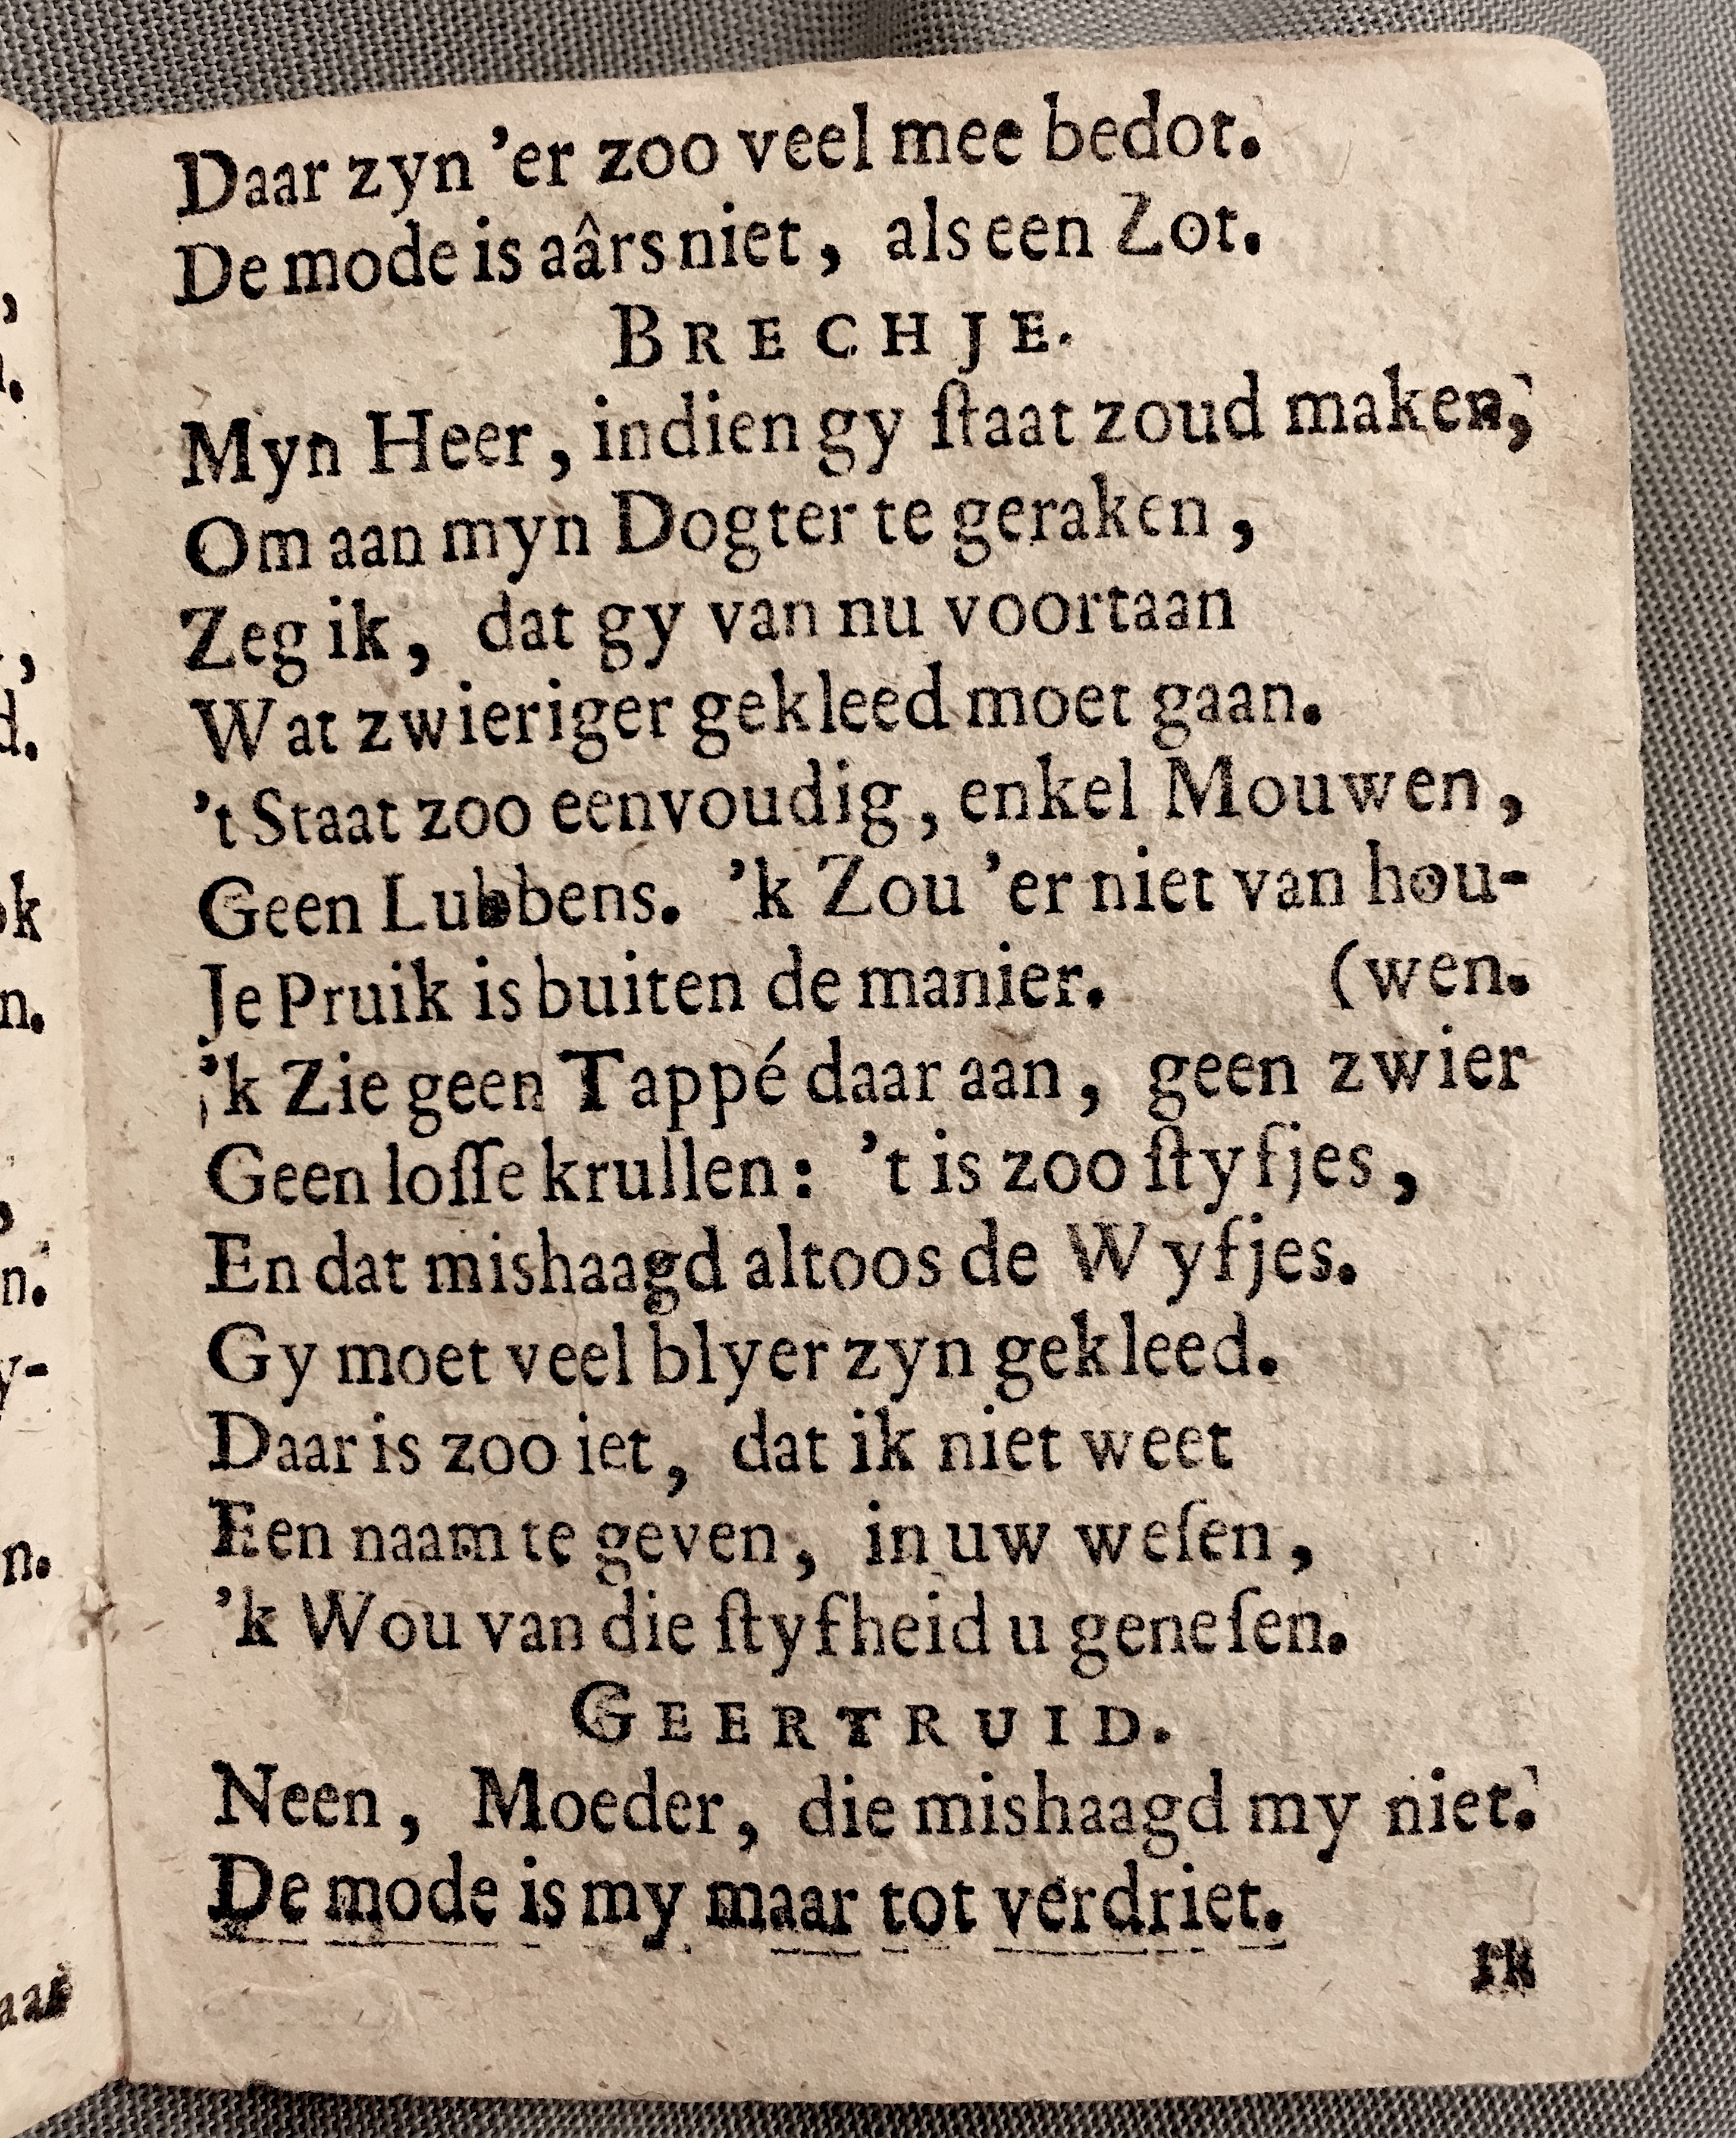 Daar zyn 'er zoo veel mee bedot.
De mode is aârs niet, als een Zot.
BRECHJE.
Myn Heer, indien gy ſtaat zoud maken,
Om aan myn Dogter te geraken,
Zeg ik, dat gy van nu voortaan
Wat zwieriger gekleed moet gaan.
't Staat zoo eenvoudig, enkel Mouwen,
Geen Lubbens. 'k Zou 'er niet van hou-
Je Pruik is buiten de manier. (wen.
'k Zie geen Tappé daar aan, geen zwier
Geen loſſe krullen: 't is zoo ſtyfjes,
En dat mishaagd altoos de Wyfjes.
Gy moet veel blyer zyn gekleed.
Daar is zoo iet, dat ik niet weet
Een naam te geven, in uw weſen,
'k Wou van die ſtyfheid u geneſen.
GEERTRUID.
Neen, Moeder, die mishaagd my niet.
De mode is my maar tot verdriet.